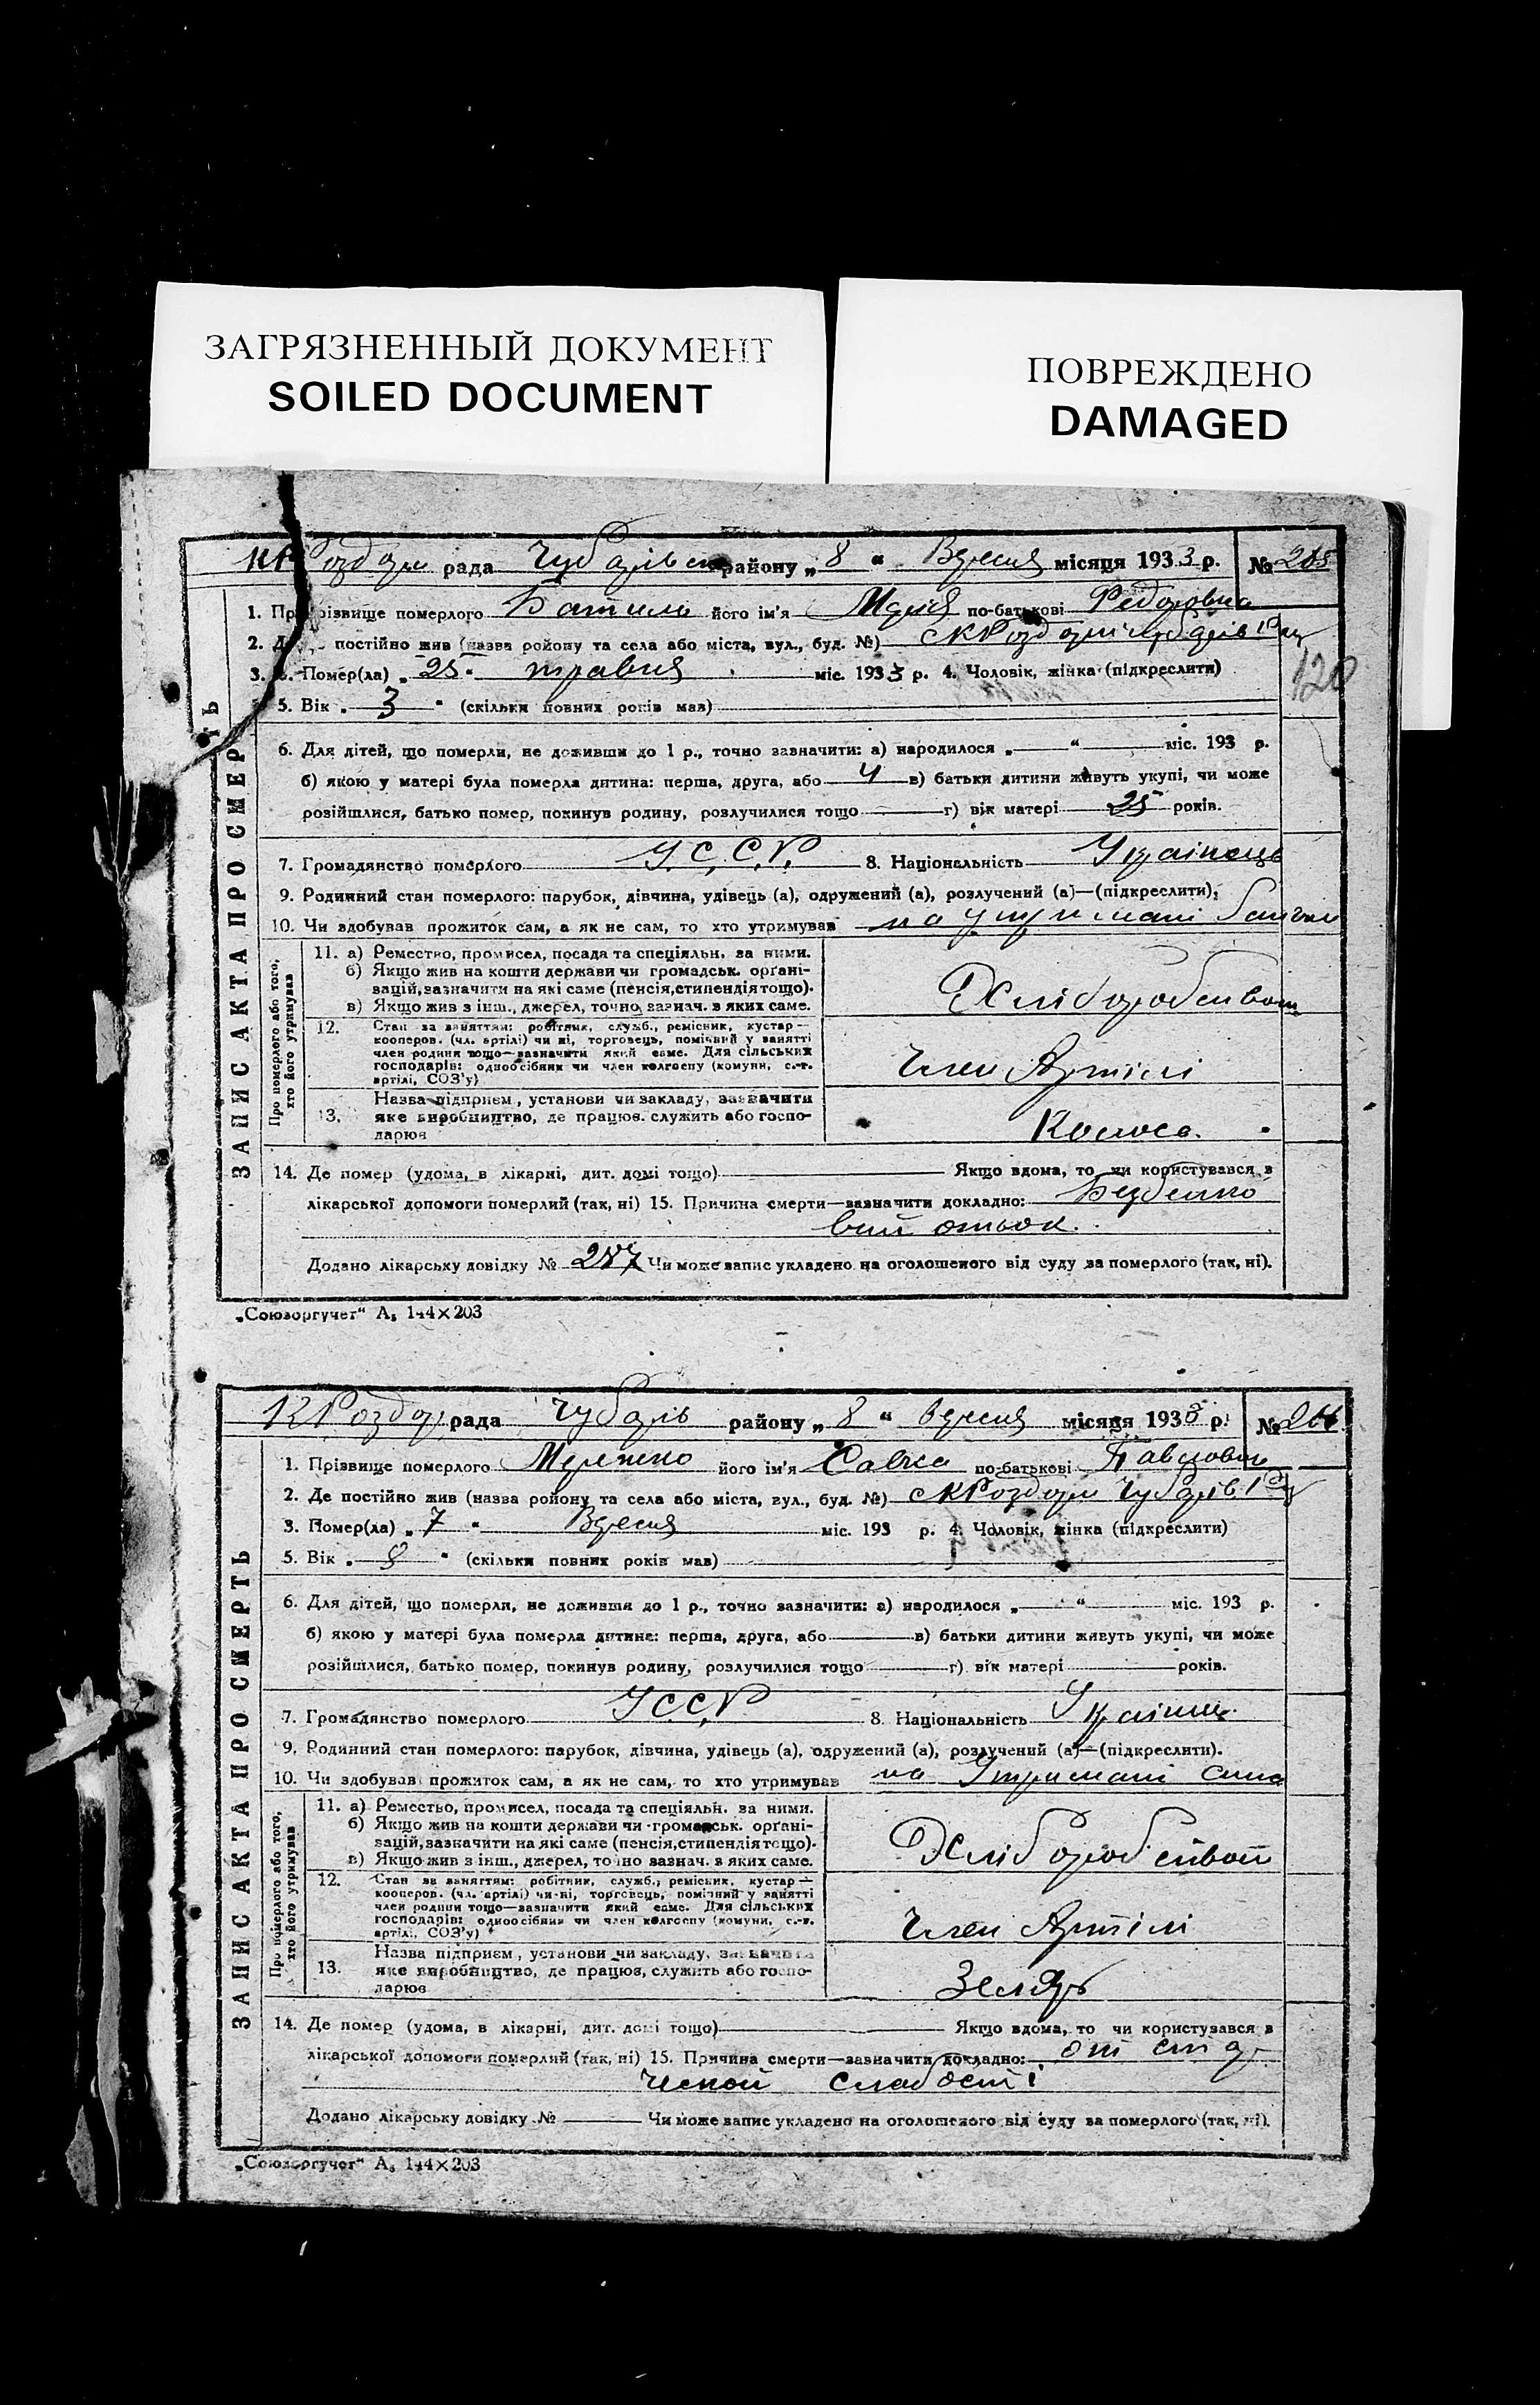 ЗАГРЯЗНЕННЫЙ ДОКУМЕНТ
SOILED DOCUMENT
ПОВРЕЖДЕНО
DAMAGED
рада району „ 8 “ Вересня місяця 1933 р. № 265
1. Прізвище померлого його ім'я Марія по-батькові Федоровна
2. постійно жив (назва району та села або міста, вул., буд. №)
3. Помер(ла) „ 25 “ травня міс. 1933 р. 4. Чоловік, жінка (підкреслити)
120
5. Вік „ 3 “ (скільки повних років мав)
6. Для дітей, що померли, не доживши до 1 р., точно зазначити: а) народилося „ “ міс. 193 р.
б) якою у матері була померла дитина: перша, друга, або 4 в) батьки дитини живуть укупі, чи може
розійшлися, батько помер, покинув родину, розлучилися тощо г) вік матері 25 років.
7. Громадянство померлого У.С.С.Р. 8. Національність Украінець
9. Родинний стан померлого: парубок, дівчина, удівець (а), одружений (а), розлучений (а)—(підкреслити).
10. Чи здобував прожиток сам, а як не сам, то хто утримував на утримані батьки
ЗАПИС АКТА ПРО СМЕРТЬ
Про померлого або того, хто його утримував
11. а) Ремество, промисел, посада та спеціяльн. за ними.
б) Якщо жив на кошти держави чи громадськ. орґані-
зацій, зазначити на які саме (пенсія, стипендія тощо).
в) Якщо жив з інш., джерел, точно зазнач. з яких саме.
12. Стан за заняттям: робітник, служб., ремісник, кустар—
кооперов. (чл. артілі) чи ні, торговець, помічний у занятті
член родини тощо—зазначити який саме. Для сільських
господарів: одноосібник чи член колгоспу (комуни, с.-г.
артілі, СОЗ'у)
Член Артілі
Назва підприєм, установи чи закладу, зазначити
13. яке виробництво, де працюв. служить або госпо-
дарюв
Колос
14. Де помер (удома, в лікарні, дит. домі тощо) Якщо вдома, то чи користувався з
лікарської допомоги померлий (так, ні) 15. Причина смерти—зазначити докладно: Безбелко
вий отьок.
Додано лікарську довідку № 287 Чи може запис укладено на оголошеного від суду за померлого (так, ні).
„Союзоргучет“ А₅ 144×203
рада Чубарів району „ 8 “ вересня місяця 1933 р. № 266
1. Прізвище померлого Мережко його ім'я Савка по-батькові Павлович
2. Де постійно жив (назва району та села або міста, вул., буд. №)
3. Помер(ла) „ 7 “ Вересня міс. 193 р. 4. Чоловік, жінка (підкреслити)
5. Вік „ “ (скільки повних років мав)
6. Для дітей, що померли, не доживши до 1 р., точно зазначити: а) народилося „ “ міс. 193 р.
б) якою у матері була померла дитина: перша, друга, або в) батьки дитини живуть укупі, чи може
розійшлися, батько помер, покинув родину, розлучилися тощо г) вік матері років.
7. Громадянство померлого УССР 8. Національність
9. Родинний стан померлого: парубок, дівчина, удівець (а), одружений (а), розлучений (а)—(підкреслити).
10. Чи здобував прожиток сам, а як не сам, то хто утримував на Утримані сина
ЗАПИС АКТА ПРО СМЕРТЬ
Про померлого або того, хто його утримував
11. а) Ремество, промисел, посада та спеціяльн. за ними.
б) Якщо жив на кошти держави чи громадськ. орґані-
зацій, зазначити на які саме (пенсія, стипендія тощо).
в) Якщо жив з інш., джерел, точно зазнач. з яких саме.
12. Стан за заняттям: робітник, служб., ремісник, кустар—
кооперов. (чл. артілі) чи ні, торговець, помічний у занятті
член родини тощо—зазначити який саме. Для сільських
господарів: одноосібник чи член колгоспу (комуни, с.-г.
артілі, СОЗ'у)
Член Артілі
Назва підприєм, установи чи закладу, зазначити
13. яке виробництво, де працюв, служить або госпо-
дарюв
14. Де помер (удома, в лікарні, дит. домі тощо) Якщо вдома, то чи користувався з
лікарської допомоги померлий (так, ні) 15. Причина смерти—зазначити докладно: от стар
ческой слабості
Додано лікарську довідку № Чи може запис укладено на оголошеного від суду за померлого (так, ні).
„Союзоргучет“ А₅ 144×203